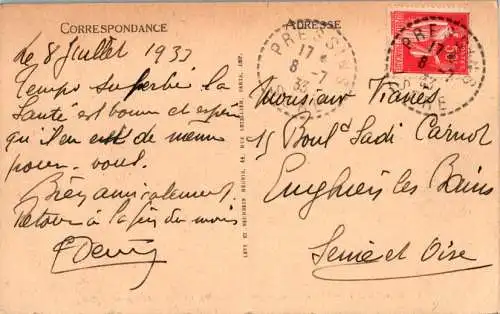 CORRESPONDANCE
ADRESSE
Le 8 Juillet 1933
Temps superbe la
Santé est bonne et espère
qu'il en est de même
pour vous.
Bien amicalement.
Retour à la fin du mois
LEVY ET NEURDEIN RÉUNIS, 44, RUE LETELLIER, PARIS, IMP.
PRESSI
17
8 -7
33
17
8 -7
33
Monsieur
15 Boulᵈ Sadi Carnot
Enghien les Bains
Seine et Oise